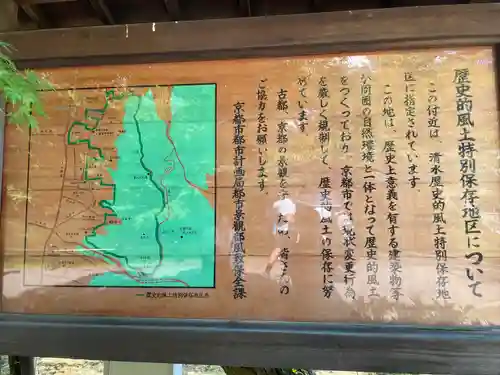 歴史的風土特別保存地区について
この付近は、清水歴史的風土特別保存地
区に指定されています。
この地は、歴史上意義を有する建築物等
が周囲の自然環境と一体となって歴史的風土
をつくっており、京都市では現状変更行為
を厳しく規制して、歴史的風土の保存に努
めています。
古都、京都の景観を
ご協力をお願いします。
京都市都市計画局都市景観部風致保全課
歴史的風土特別保存地区